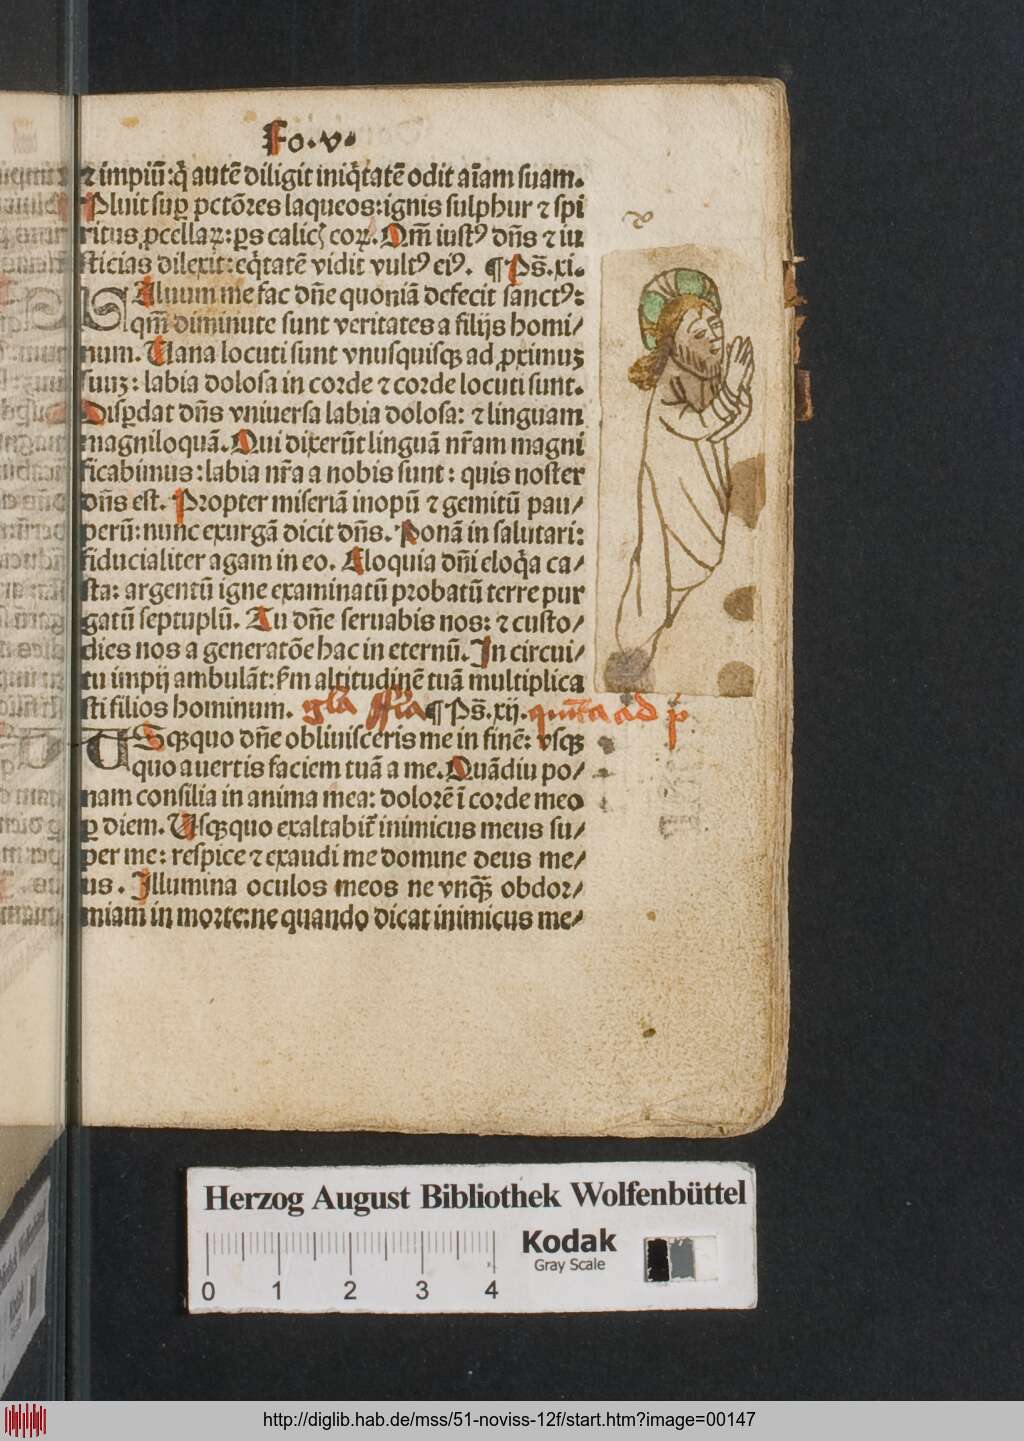 Fo. v.
⁊ impiū: q̄ autē diligit iniq̄tatē odit aīam suam.
Pluit sup pctōres laqueos: ignis sulphur ⁊ spi
ritus ꝓcellaꝝ: ps calicꝭ coꝝ. Qm̄ iustꝰ dn̄s ⁊ iu
sticias dilexit: eq̄tatē vidit vultꝰ eiꝰ. ¶ Ps̄. xi.
SAluum me fac dn̄e quoniā defecit sanctꝰ:
qm̄ diminute sunt veritates a filijs homi/
num. Uana locuti sunt vnusquisqꝫ ad ꝓximuꝫ
suuꝫ: labia dolosa in corde ⁊ corde locuti sunt.
Disꝑdat dn̄s vniuersa labia dolosa: ⁊ linguam
magniloquā. Qui dixerūt linguā nr̄am magni
ficabimus: labia nr̄a a nobis sunt: quis noster
dn̄s est. Propter miseriā inopū ⁊ gemitū pau/
perū: nunc exurgā dicit dn̄s. Ponā in salutari:
fiducialiter agam in eo. Eloquia dn̄i eloq̄a ca/
sta: argentū igne examinatū probatū terre pur
gatū septuplū. Tu dn̄e seruabis nos: ⁊ custo/
dies nos a generatōe hac in eternū. In circui/
tu impij ambulāt: ẜm altitudinē tuā multiplica
sti filios hominum. gla ¶ Ps̄. xij. quīta ad p
USqꝫquo dn̄e obliuisceris me in finē: vsqꝫ
quo auertis faciem tuā a me. Quādiu po/
nam consilia in anima mea: dolorē ī corde meo
ꝑ diem. Usqꝫquo exaltabit̄ inimicus meus su/
per me: respice ⁊ exaudi me domine deus me/
us. Illumina oculos meos ne vnqꝫ̄ obdor/
miam in morte: ne quando dicat inimicus me/
Herzog August Bibliothek Wolfenbüttel
Kodak
Gray Scale
0 1 2 3 4
http://diglib.hab.de/mss/51-noviss-12f/start.htm?image=00147